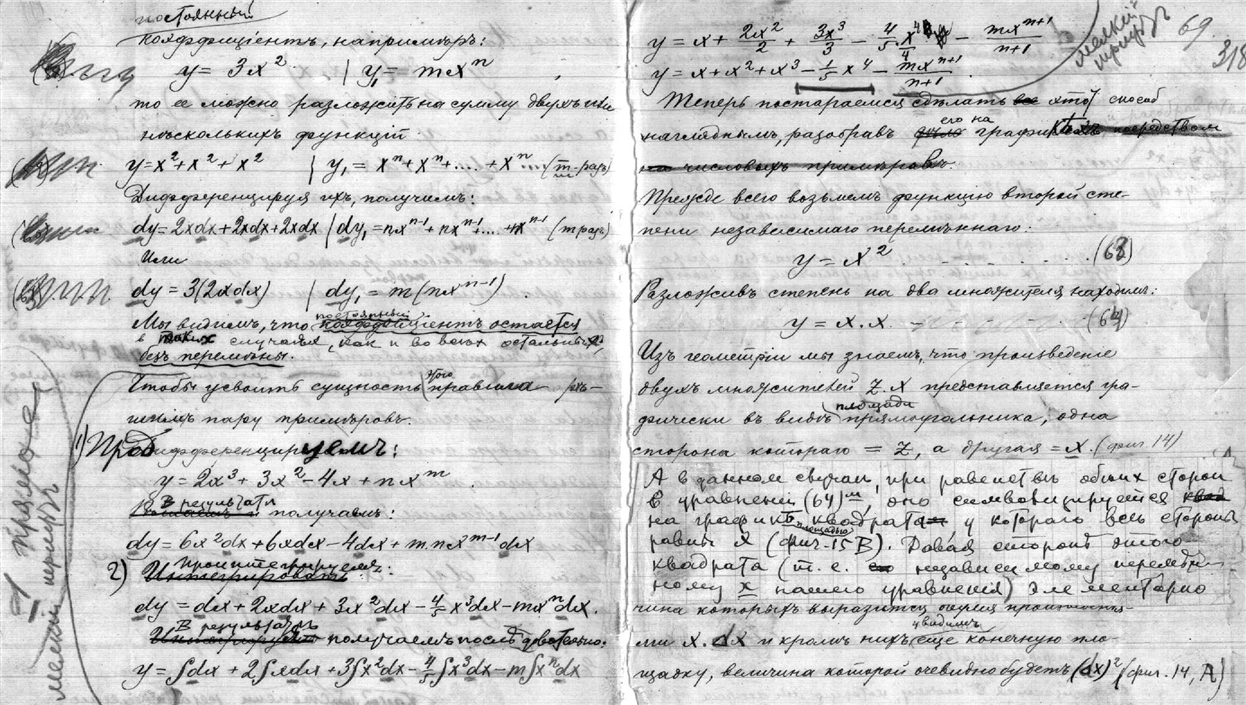 постоянный
коэффиціентъ, напримѣръ:
y = 3x² | y₁ = mxⁿ
то ее можно разложить на сумму двухъ или
нѣсколькихъ функцій.
y = x² + x² + x² | y₁ = xⁿ + xⁿ + .... + xⁿ (m-разъ)
Дифференцируя ихъ, получимъ:
dy = 2xdx + 2xdx + 2xdx | dy₁ = nxⁿ⁻¹ + nxⁿ⁻¹ + .... + nxⁿ⁻¹ (m разъ)
Или
dy = 3(2xdx) | dy₁ = m(nxⁿ⁻¹)
постоянный
Мы видимъ, что коэффиціентъ остается
в таких случаях, как и во всех остальных,
безъ перемѣны.
Чтобы усвоить сущность этого правила рѣ-
шимъ пару примѣровъ.
1) Продифференцируемъ:
y = 2x³ + 3x² - 4x + nxᵐ
В результатѣ получаемъ:
dy = 6x²dx + 6xdx - 4dx + mnxᵐ⁻¹dx
Проинтегрируемъ:
2) Интегрировать
dy = dx + 2xdx + 3x²dx - 4/5 x³dx - mxⁿdx.
В результатѣ
получаемъ послѣдовательно:
y = ∫dx + 2∫xdx + 3∫x²dx - 4/5∫x³dx - m∫xⁿdx
I прямое
мелкій шрифтъ
69
318
мелкій шрифтъ
y = x + 2x²/2 + 3x³/3 - 4/5 x⁴/4 - mxⁿ⁺¹/n+1
y = x + x² + x³ - 1/5 x⁴ - mxⁿ⁺¹/n+1
Теперь постараемся сдѣлать этотъ способ
нагляднымъ, разобравъ его на графикѣ посредствомъ
числовыхъ примѣровъ.
Прежде всего возьмемъ функцію второй сте-
пени независимаго перемѣннаго:
y = x² (63)
Разложивъ степень на два множителя находимъ:
y = x.x. (64)
Изъ геометріи мы знаемъ, что произведеніе
двухъ множителей z.x представляется гра-
площади
фически въ видѣ прямоугольника, одна
сторона котораго = z, а другая = x. (фиг. 14)
А в данном случаи, при равенствѣ обоих сторон
в уравненіи (64)ᵐ, оно символизируется
на графикѣ площадью квадрата у котораго всѣ стороны
равны x (фиг. 15 B). Давая сторонѣ этого
квадрата (т. е. независимому перемѣн-
ному x нашего уравненія)
чина которыхъ выразится
ми x.dx и кромѣ нихъ увидимъ еще конечную пло-
щадку, величина которой очевидно будетъ (dx)² (фиг. 14, A)